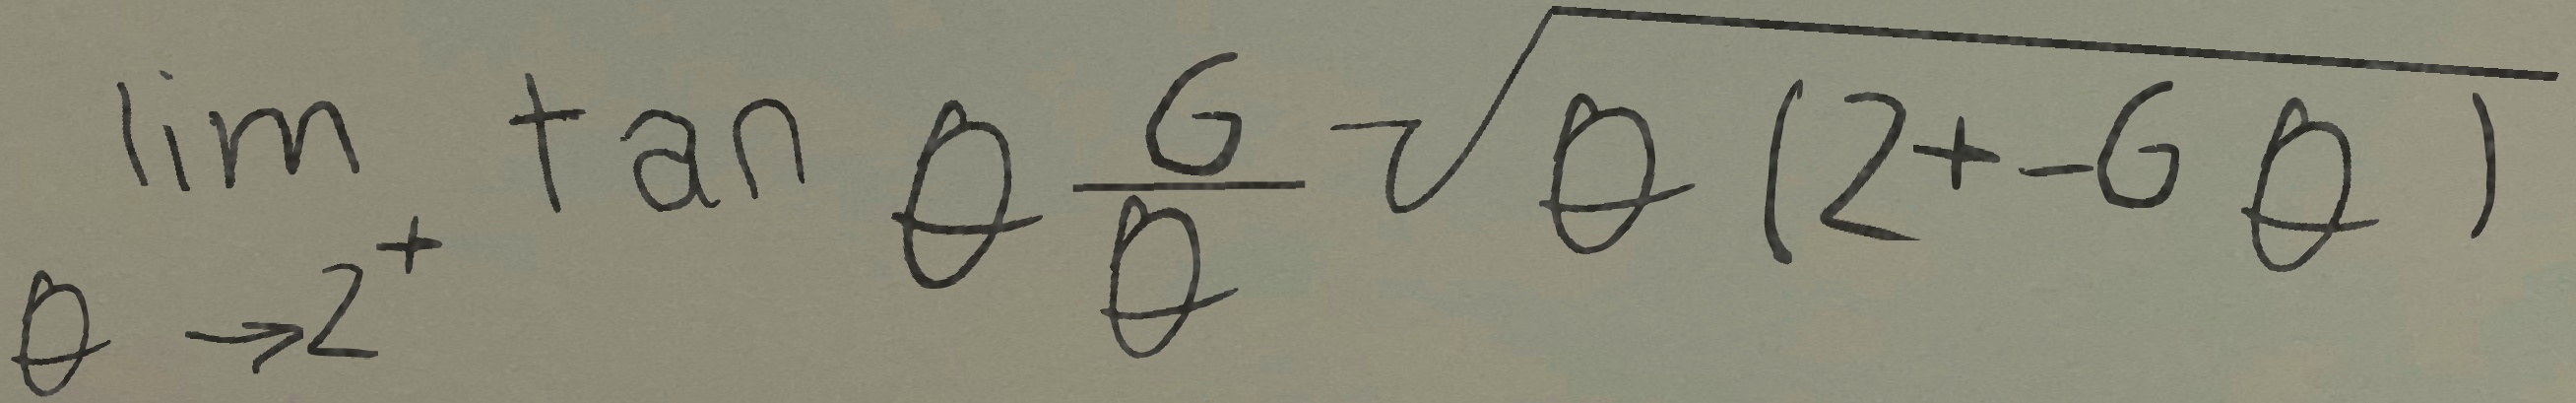 \lim_{\theta \to 2^+} \tan \theta \frac{6}{\theta} \sqrt{\theta (2 + -6 \theta)}